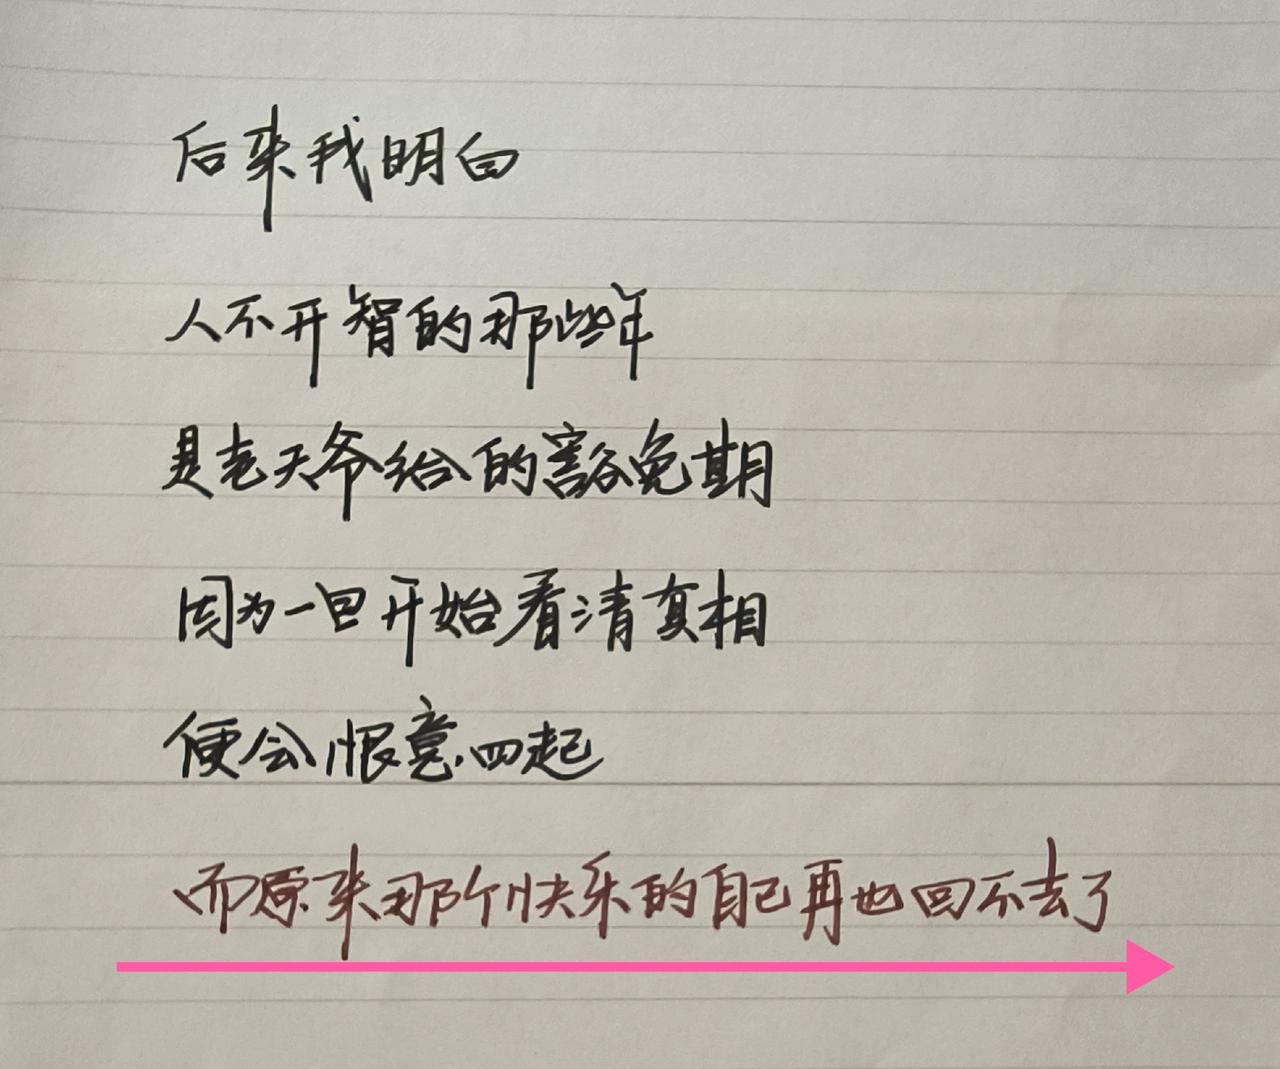 后来我明白
人不开智的那些年
是老天爷给的豁免期
因为一旦开始看清真相
便会恨意四起
而原来那个快乐的自己再也回不去了